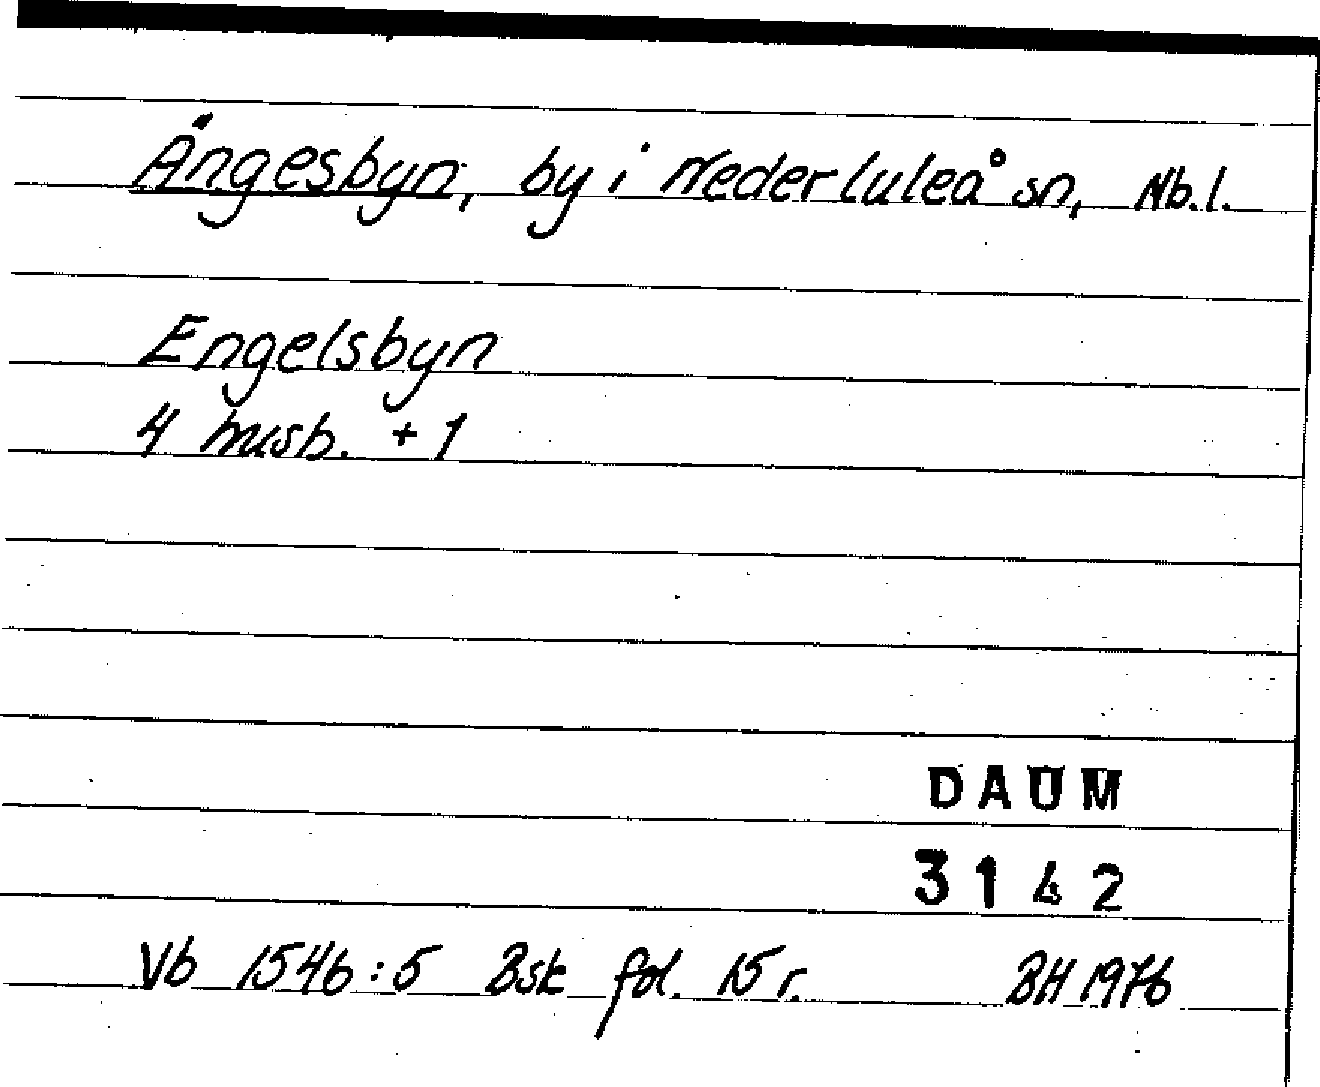 Ängesbyn, by i Nederluleå sn, Nb.l.
Engelsbyn
4 husb. + 1
DAUM
3142
Vb 1546:5 Bsk fol. 15 r. BH 1976